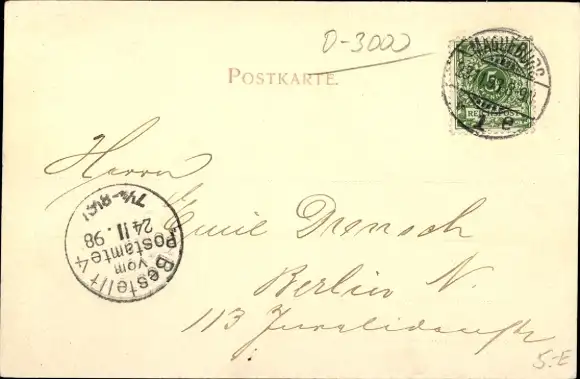 D-3000
POSTKARTE.
MAGDEBURG
5
1 e
Herrn
Emil Drensch
Berlin N.
113 Invalidenstr
Bestellt
vom
Postamte 4
24 11. 98
S.-E